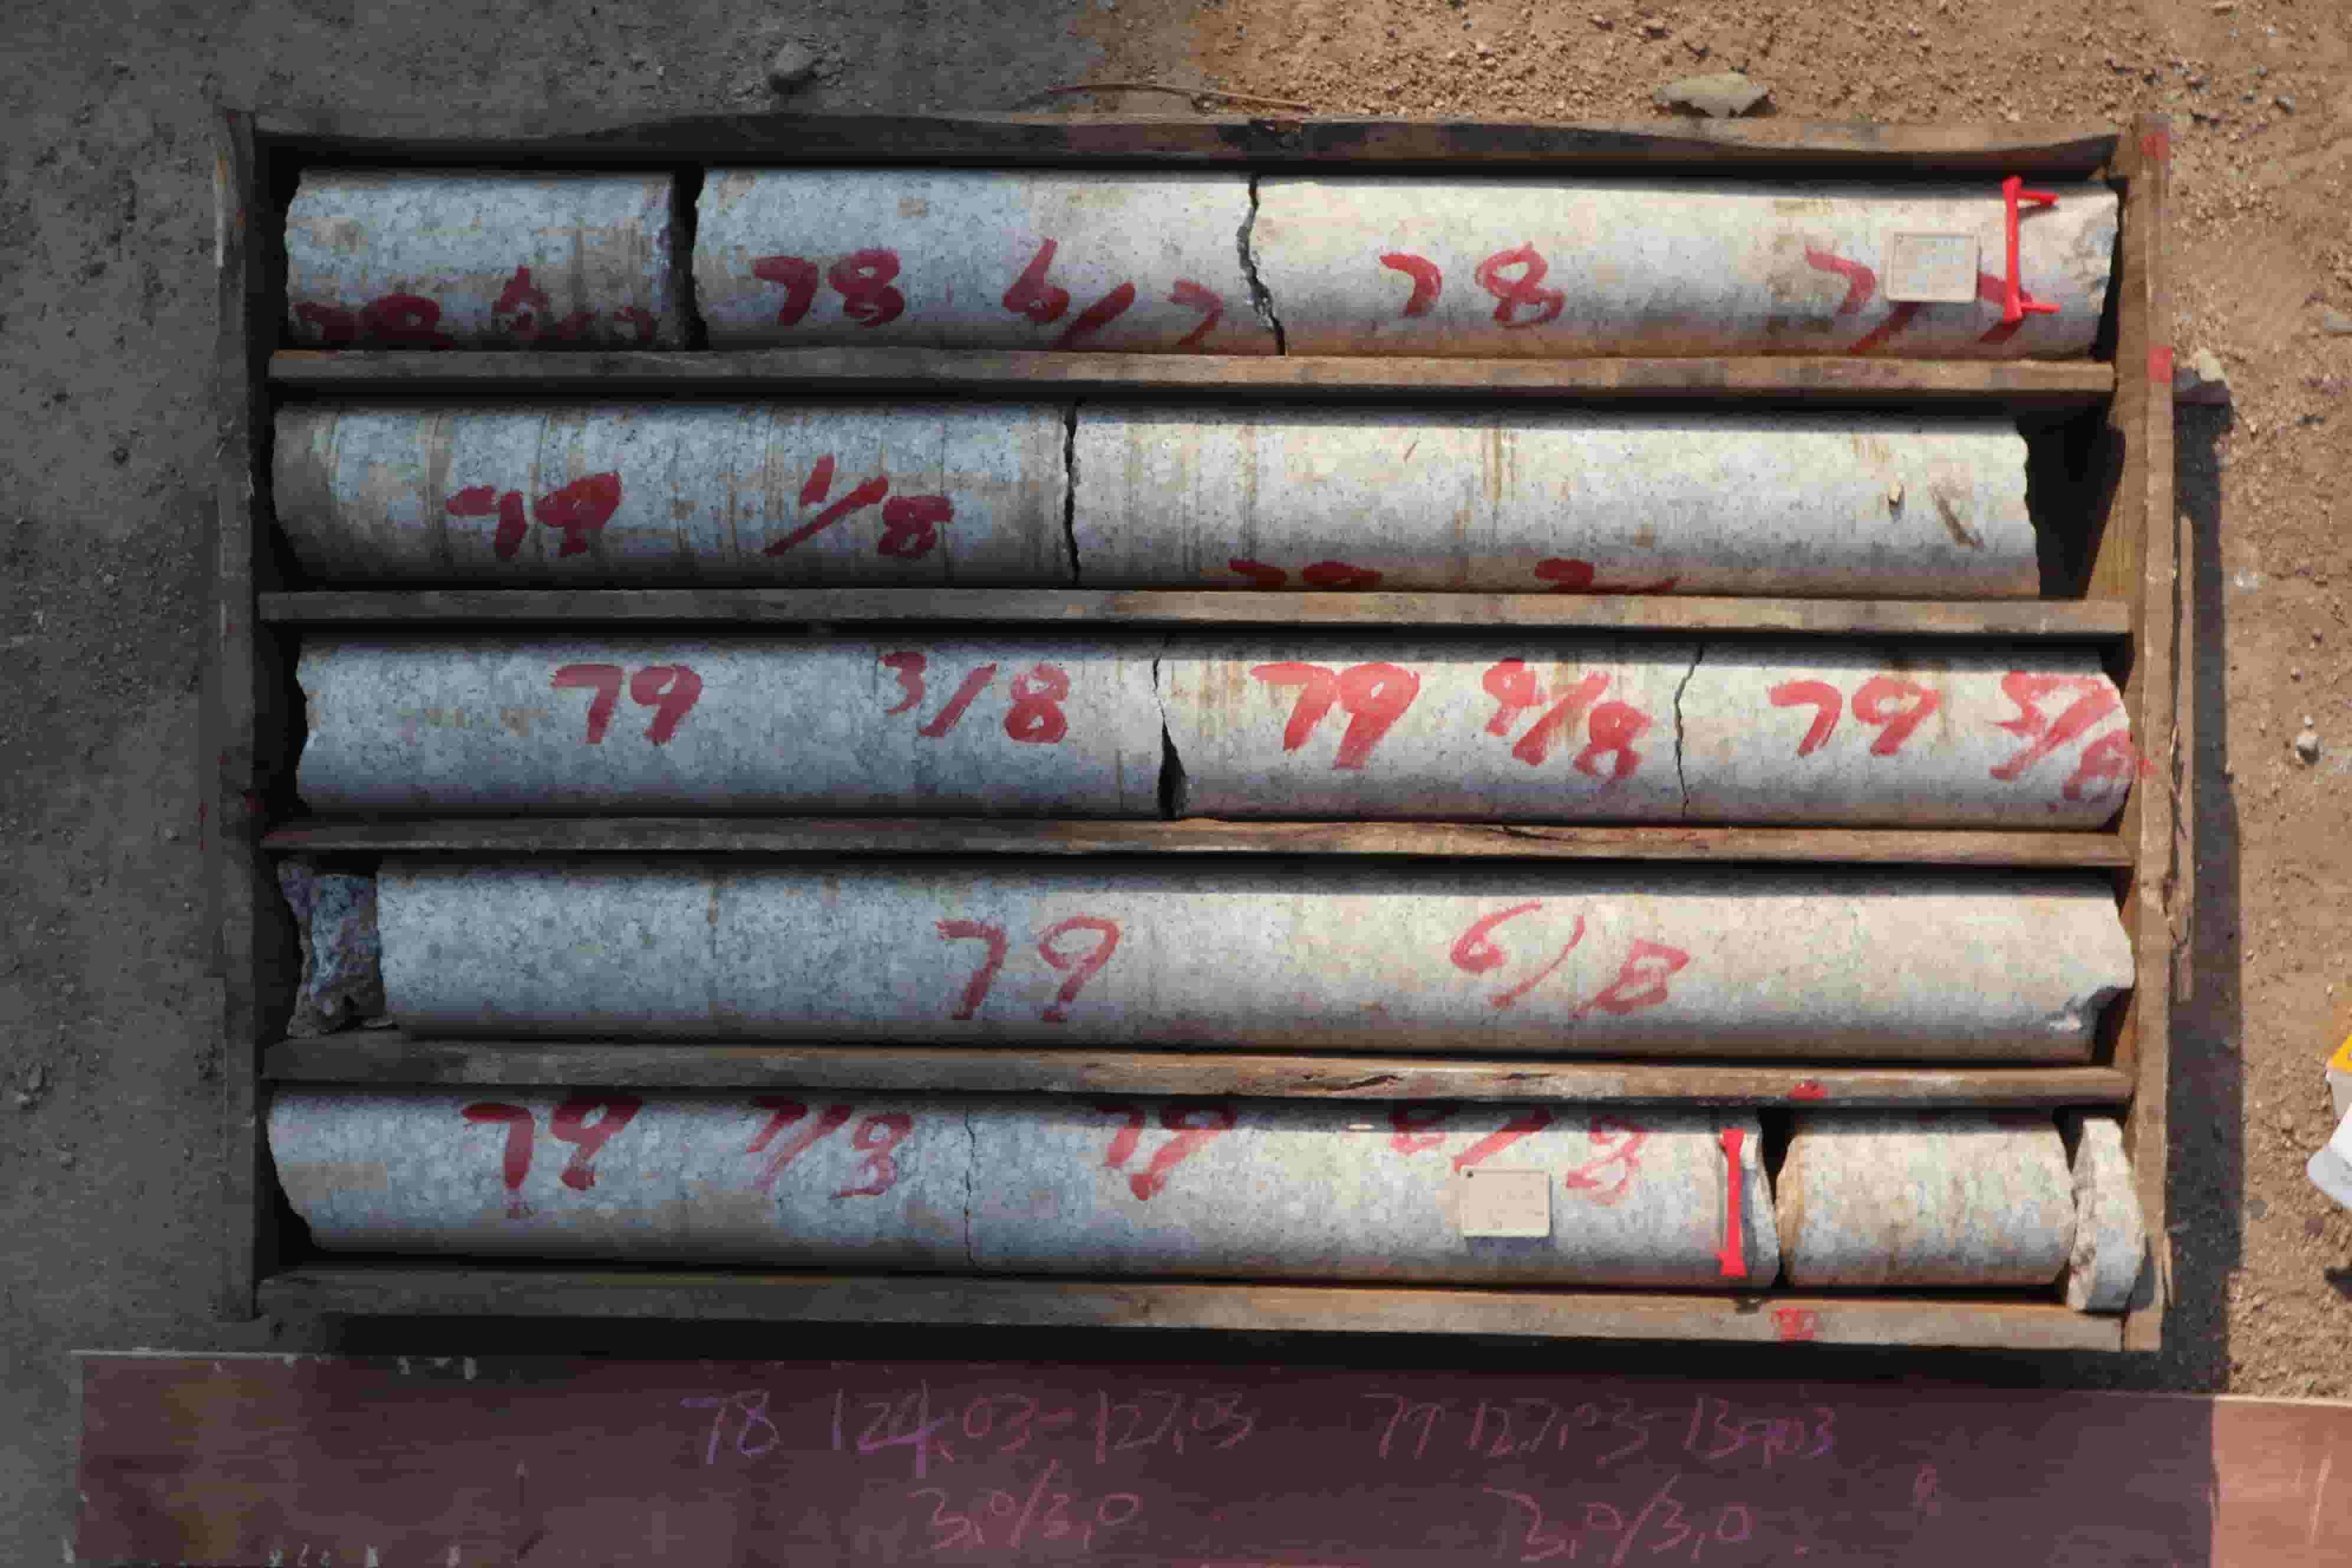 78 6/7
78 7/7
79 1/8
79 2/
79 3/8 79 4/8 79 5/8
79 6/8
79 7/8 79 8/8
78 124.03-127.03 79 127.03-130.03
3.0/3.0 3.0/3.0